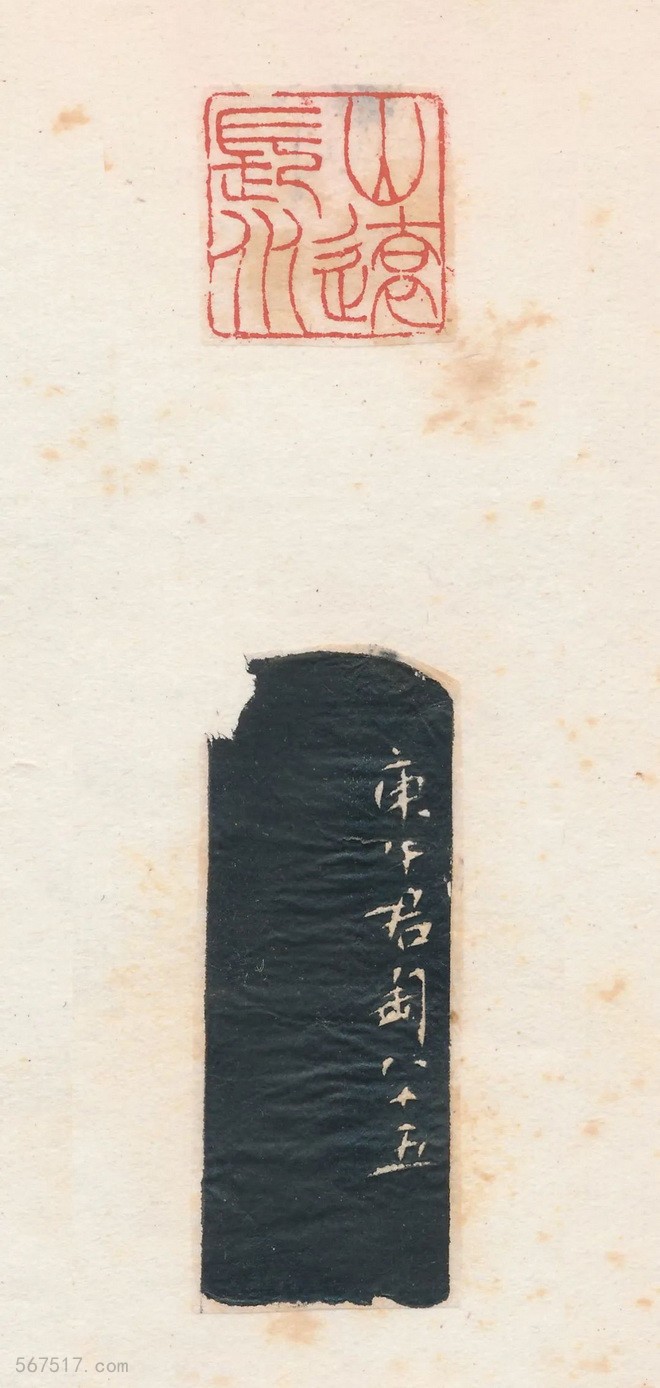 山遠
水長
庚午君匋八十五
567517.com